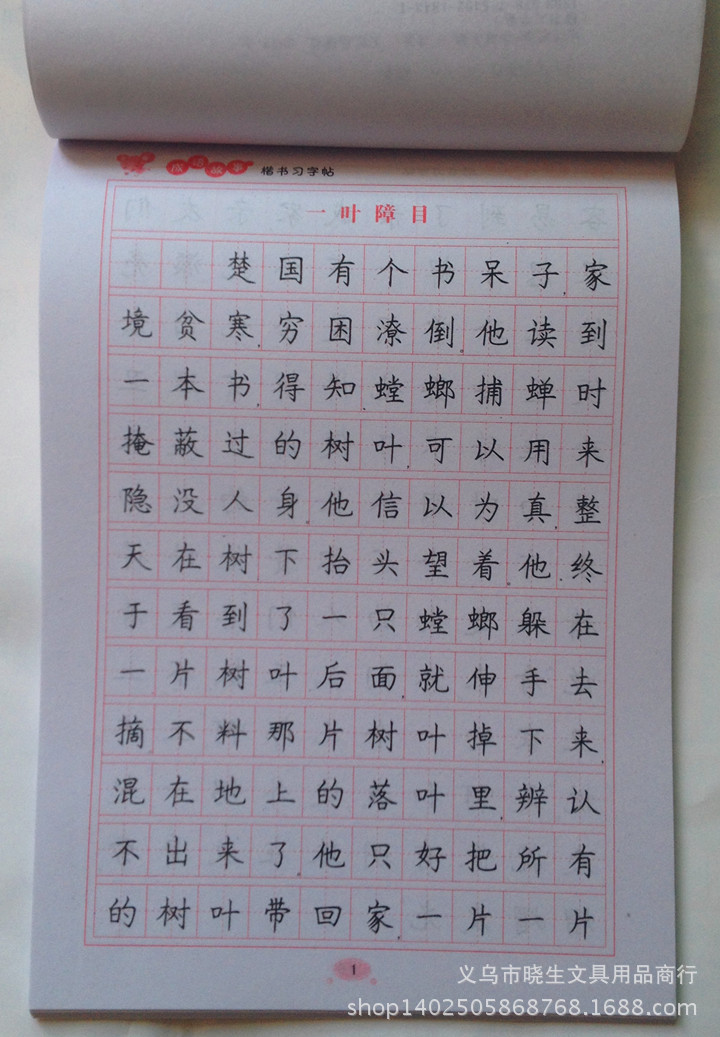 成语故事 楷书习字帖
一叶障目
楚国有个书呆子.家
境贫寒.穷困潦倒.他读到
一本书.得知螳螂捕蝉时
掩蔽过的树叶.可以用来
隐没人身.他信以为真.整
天在树下抬头望着.他终
于看到了一只螳螂躲在
一片树叶后面.就伸手去
摘.不料那片树叶掉下来.
混在地上的落叶里.辨认
不出来了.他只好把所有
的树叶带回家.一片一片
1
义乌市晓生文具用品商行
shop1402505868768.1688.com